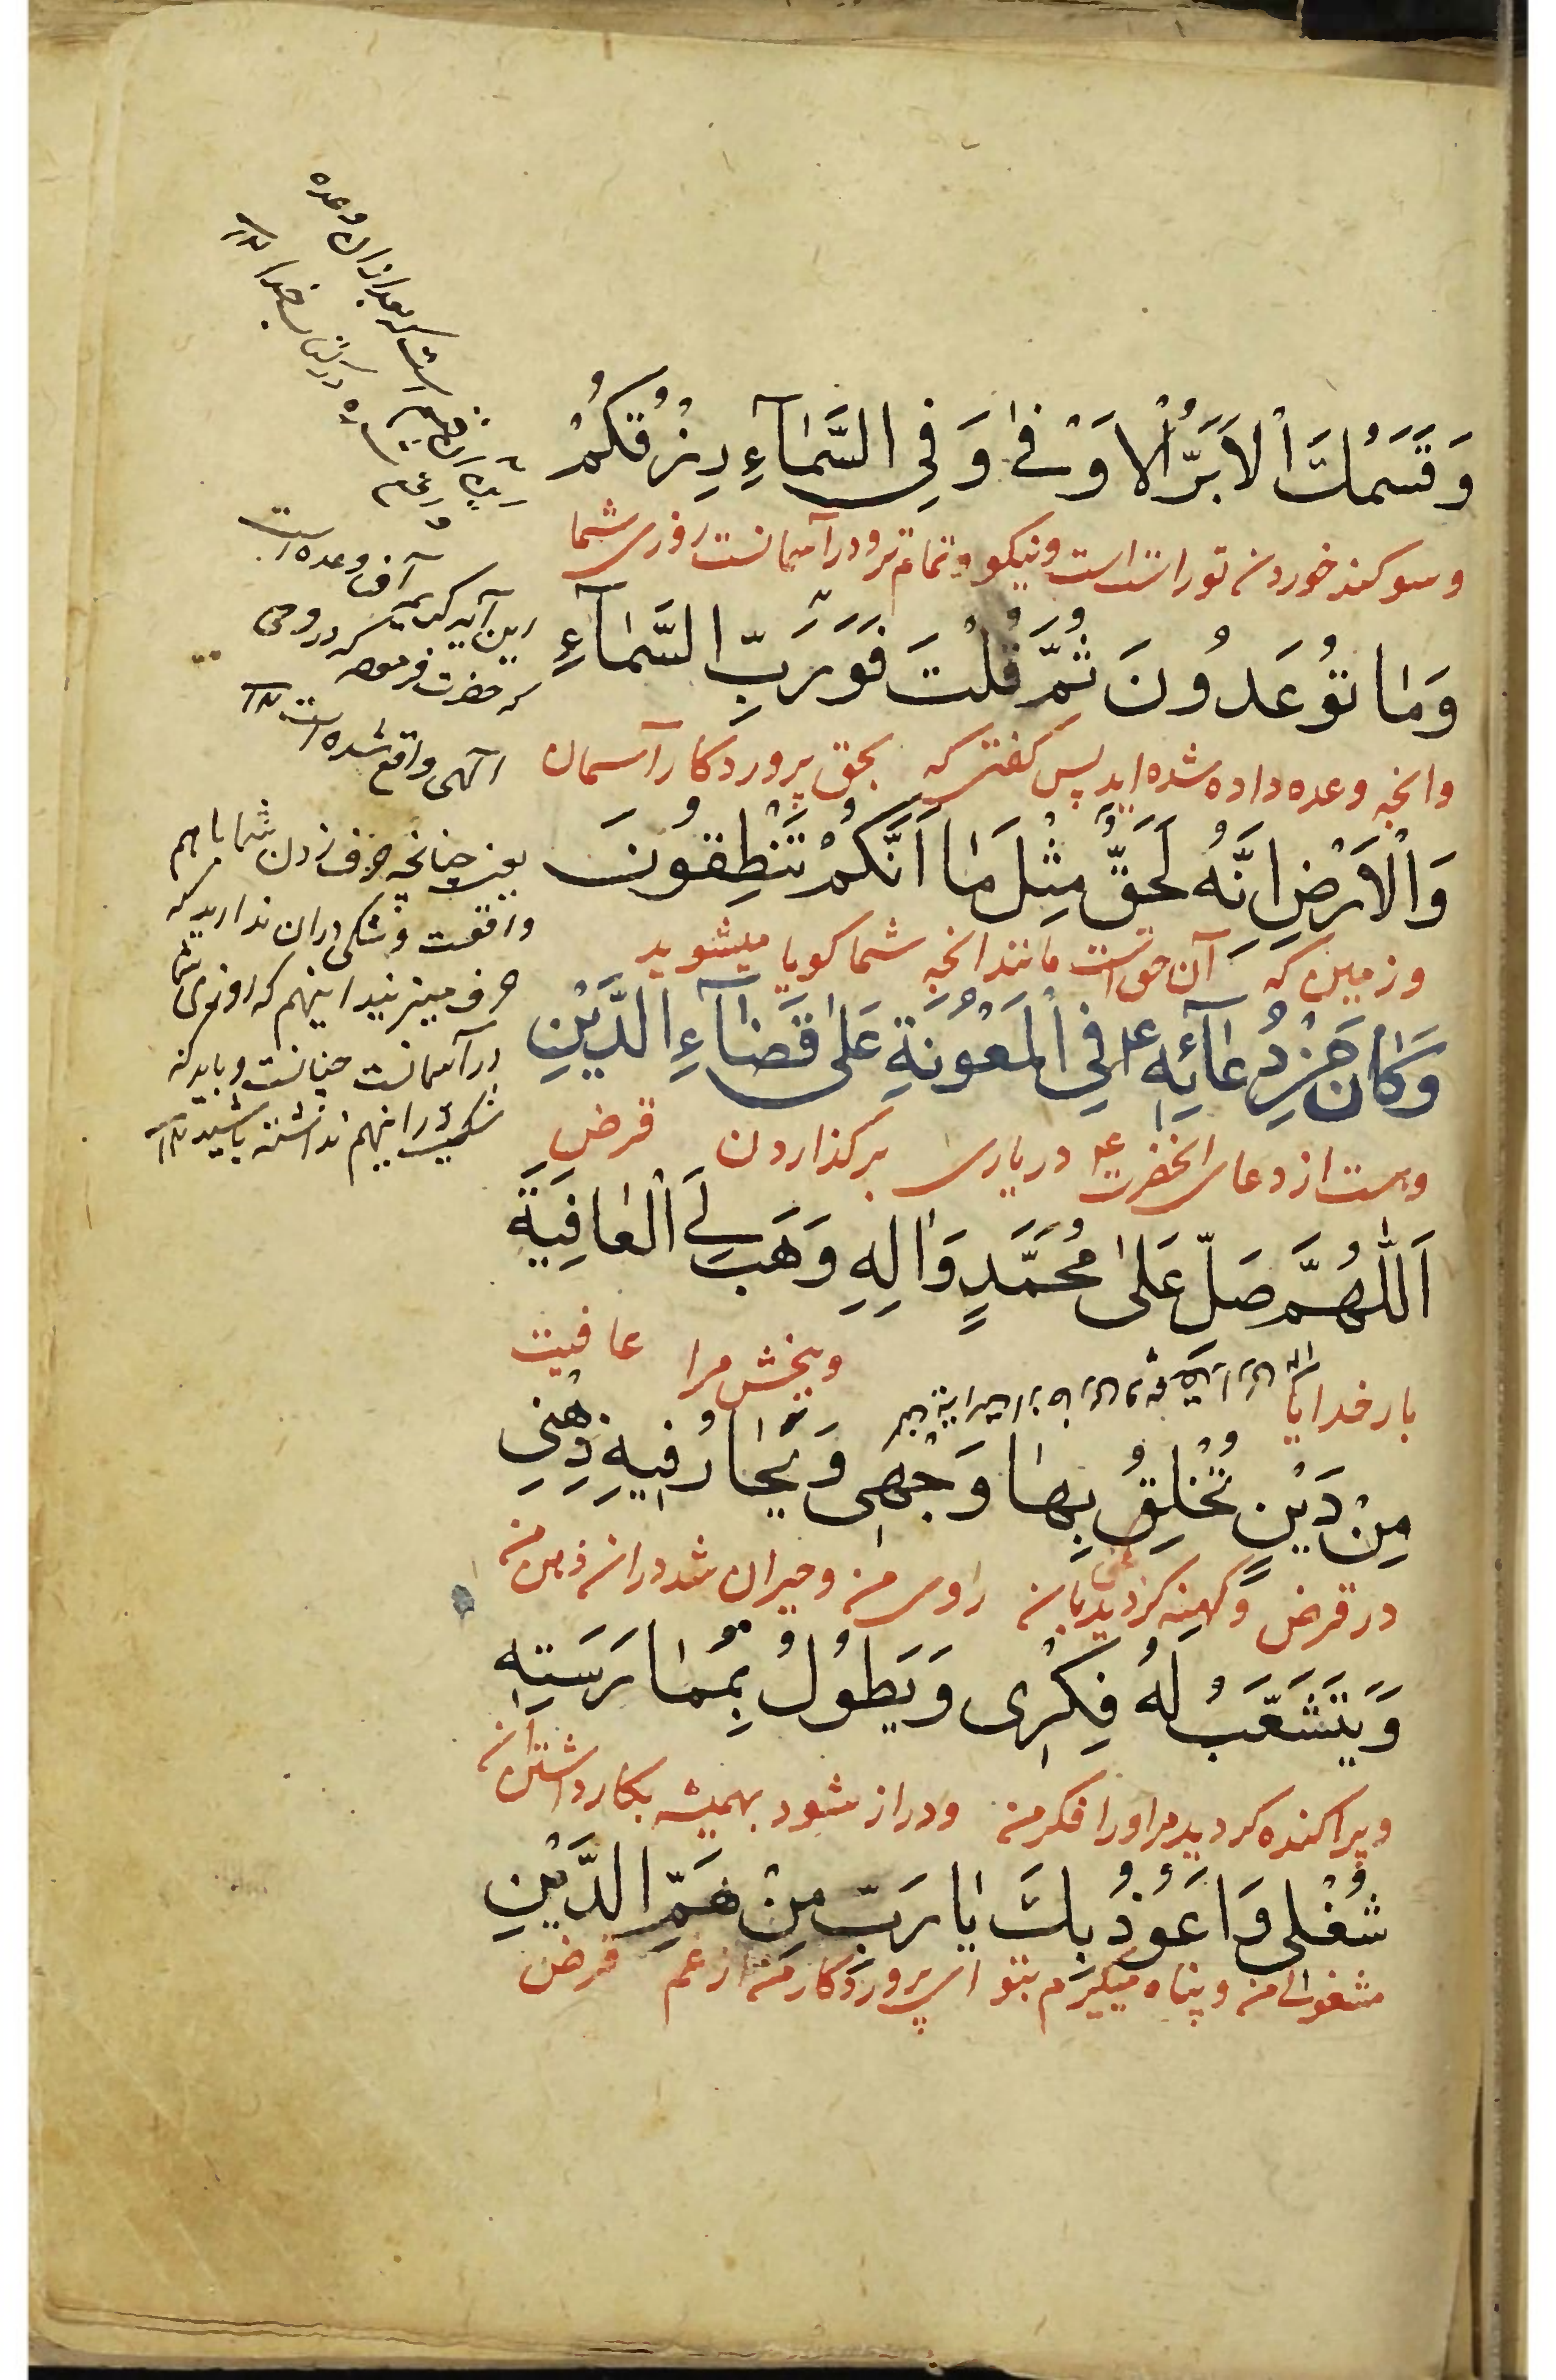 وَقَسَمُكَ الْاَبَرُّ الْاَوْفٰى وَفِي السَّمٰآءِ رِزْقُكُمْ
وسوکند خوردن تو راست است ونیکو و تمام تر ودر آسمانست روزی شما
وَمٰا تُوعَدُونَ ثُمَّ قُلْتَ فَوَرَبِّ السَّمٰآءِ
وانچه وعده داده شده اید پس کفتی که بحق پروردکار آسمان
وَالْاَرْضِ اِنَّهُ لَحَقٌّ مِثْلَ مٰا اَنَّكُمْ تَنْطِقُونَ
وزمین که آن حق است مانند انچه شما کویا میشوید
وَكٰانَ مِنْ دُعٰآئِهِ ع فِي الْمَعُونَةِ عَلىٰ قَضٰآءِ الدَّيْنِ
وهست از دعای انحضرت ع در یاری بر کذاردن قرض
اَللّٰهُمَّ صَلِّ عَلىٰ مُحَمَّدٍ وَاٰلِهِ وَهَبْ لِيَ الْعٰافِيَةَ
بار خدایا وببخش مرا عافیت
مِنْ دَيْنٍ تُخْلِقُ بِهٰا وَجْهِى وَيَحٰارُ فِيهِ ذِهْنِى
در قرض وکهنه کردید بان روی من وحیران شد دران ذهن من
وَيَتَشَعَّبُ لَهُ فِكْرِى وَيَطُولُ بِمُمٰارَسَتِهِ
وپراکنده کردید مر اورا فکر من ودراز شود بهمیشه بکار داشتن ان
شُغْلِى وَاَعُوذُ بِكَ يٰا رَبِّ مِنْ هَمِّ الدَّيْنِ
مشغولی من وپناه میکیرم بتو ای پروردکار من از غم قرض
است که بعد ازان وعده
آن وعده است
این آیه کریمه که در وحی
که حضرت
الهی واقع شده است
یعنی چنانچه حرف زدن شماباهم
واقعست وشکی دران ندارید که
حرف میزنید اینهم که روزی شما
در آسمانست چنانست وباید که
شکی در اینهم نداشته باشید